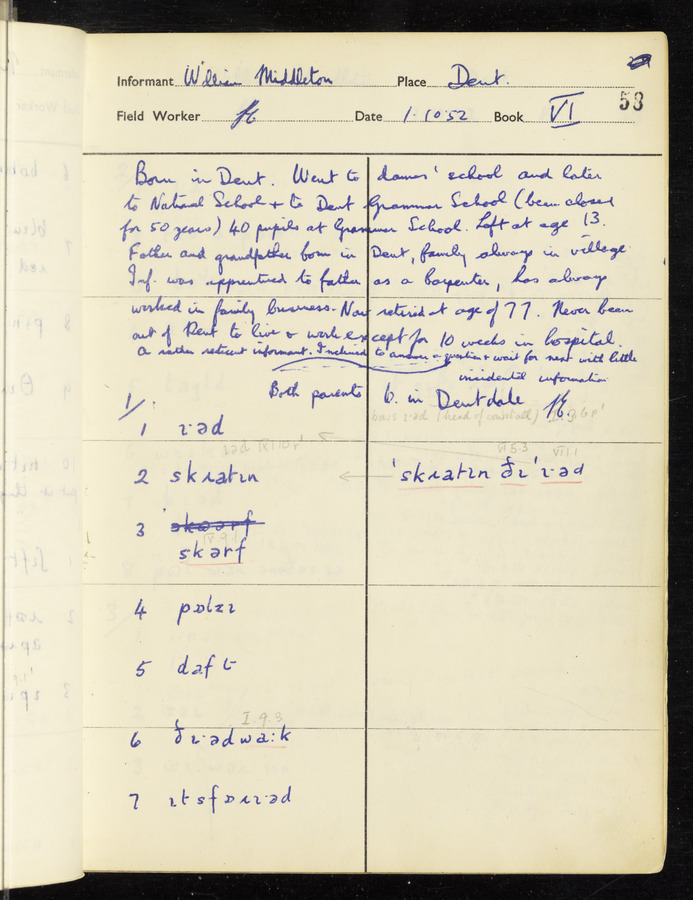 Informant William Middleton Place Dent.
Field Worker Date 1.10.52 Book VI 53
Born in Dent. Went to dames' school and later
to National School & to Dent Grammar School (been closed
for 50 years) 40 pupils at Grammar School. Left at age 13.
Father and grandfather born in Dent, family always in village
Inf. was apprenticed to father as a carpenter, has always
worked in family business. Now retired at age of 77. Never been
out of Dent to live or work except for 10 weeks in hospital.
A rather reticent informant. Inclined to answer a question & wait for next with little
incidental information
Both parents b. in Dentdale
1/.
1 ɪ·əd
2 skɹatɪn 'skɹatɪn ðɪ 'ɪ·əd
VI 5.3 VII.1
3 skaərf
skarf
4 pɒlɪɪ
5 daft
I.9.3
6 ðɪ·ədwa:k
7 ɪtsfɒɹɪ·əd